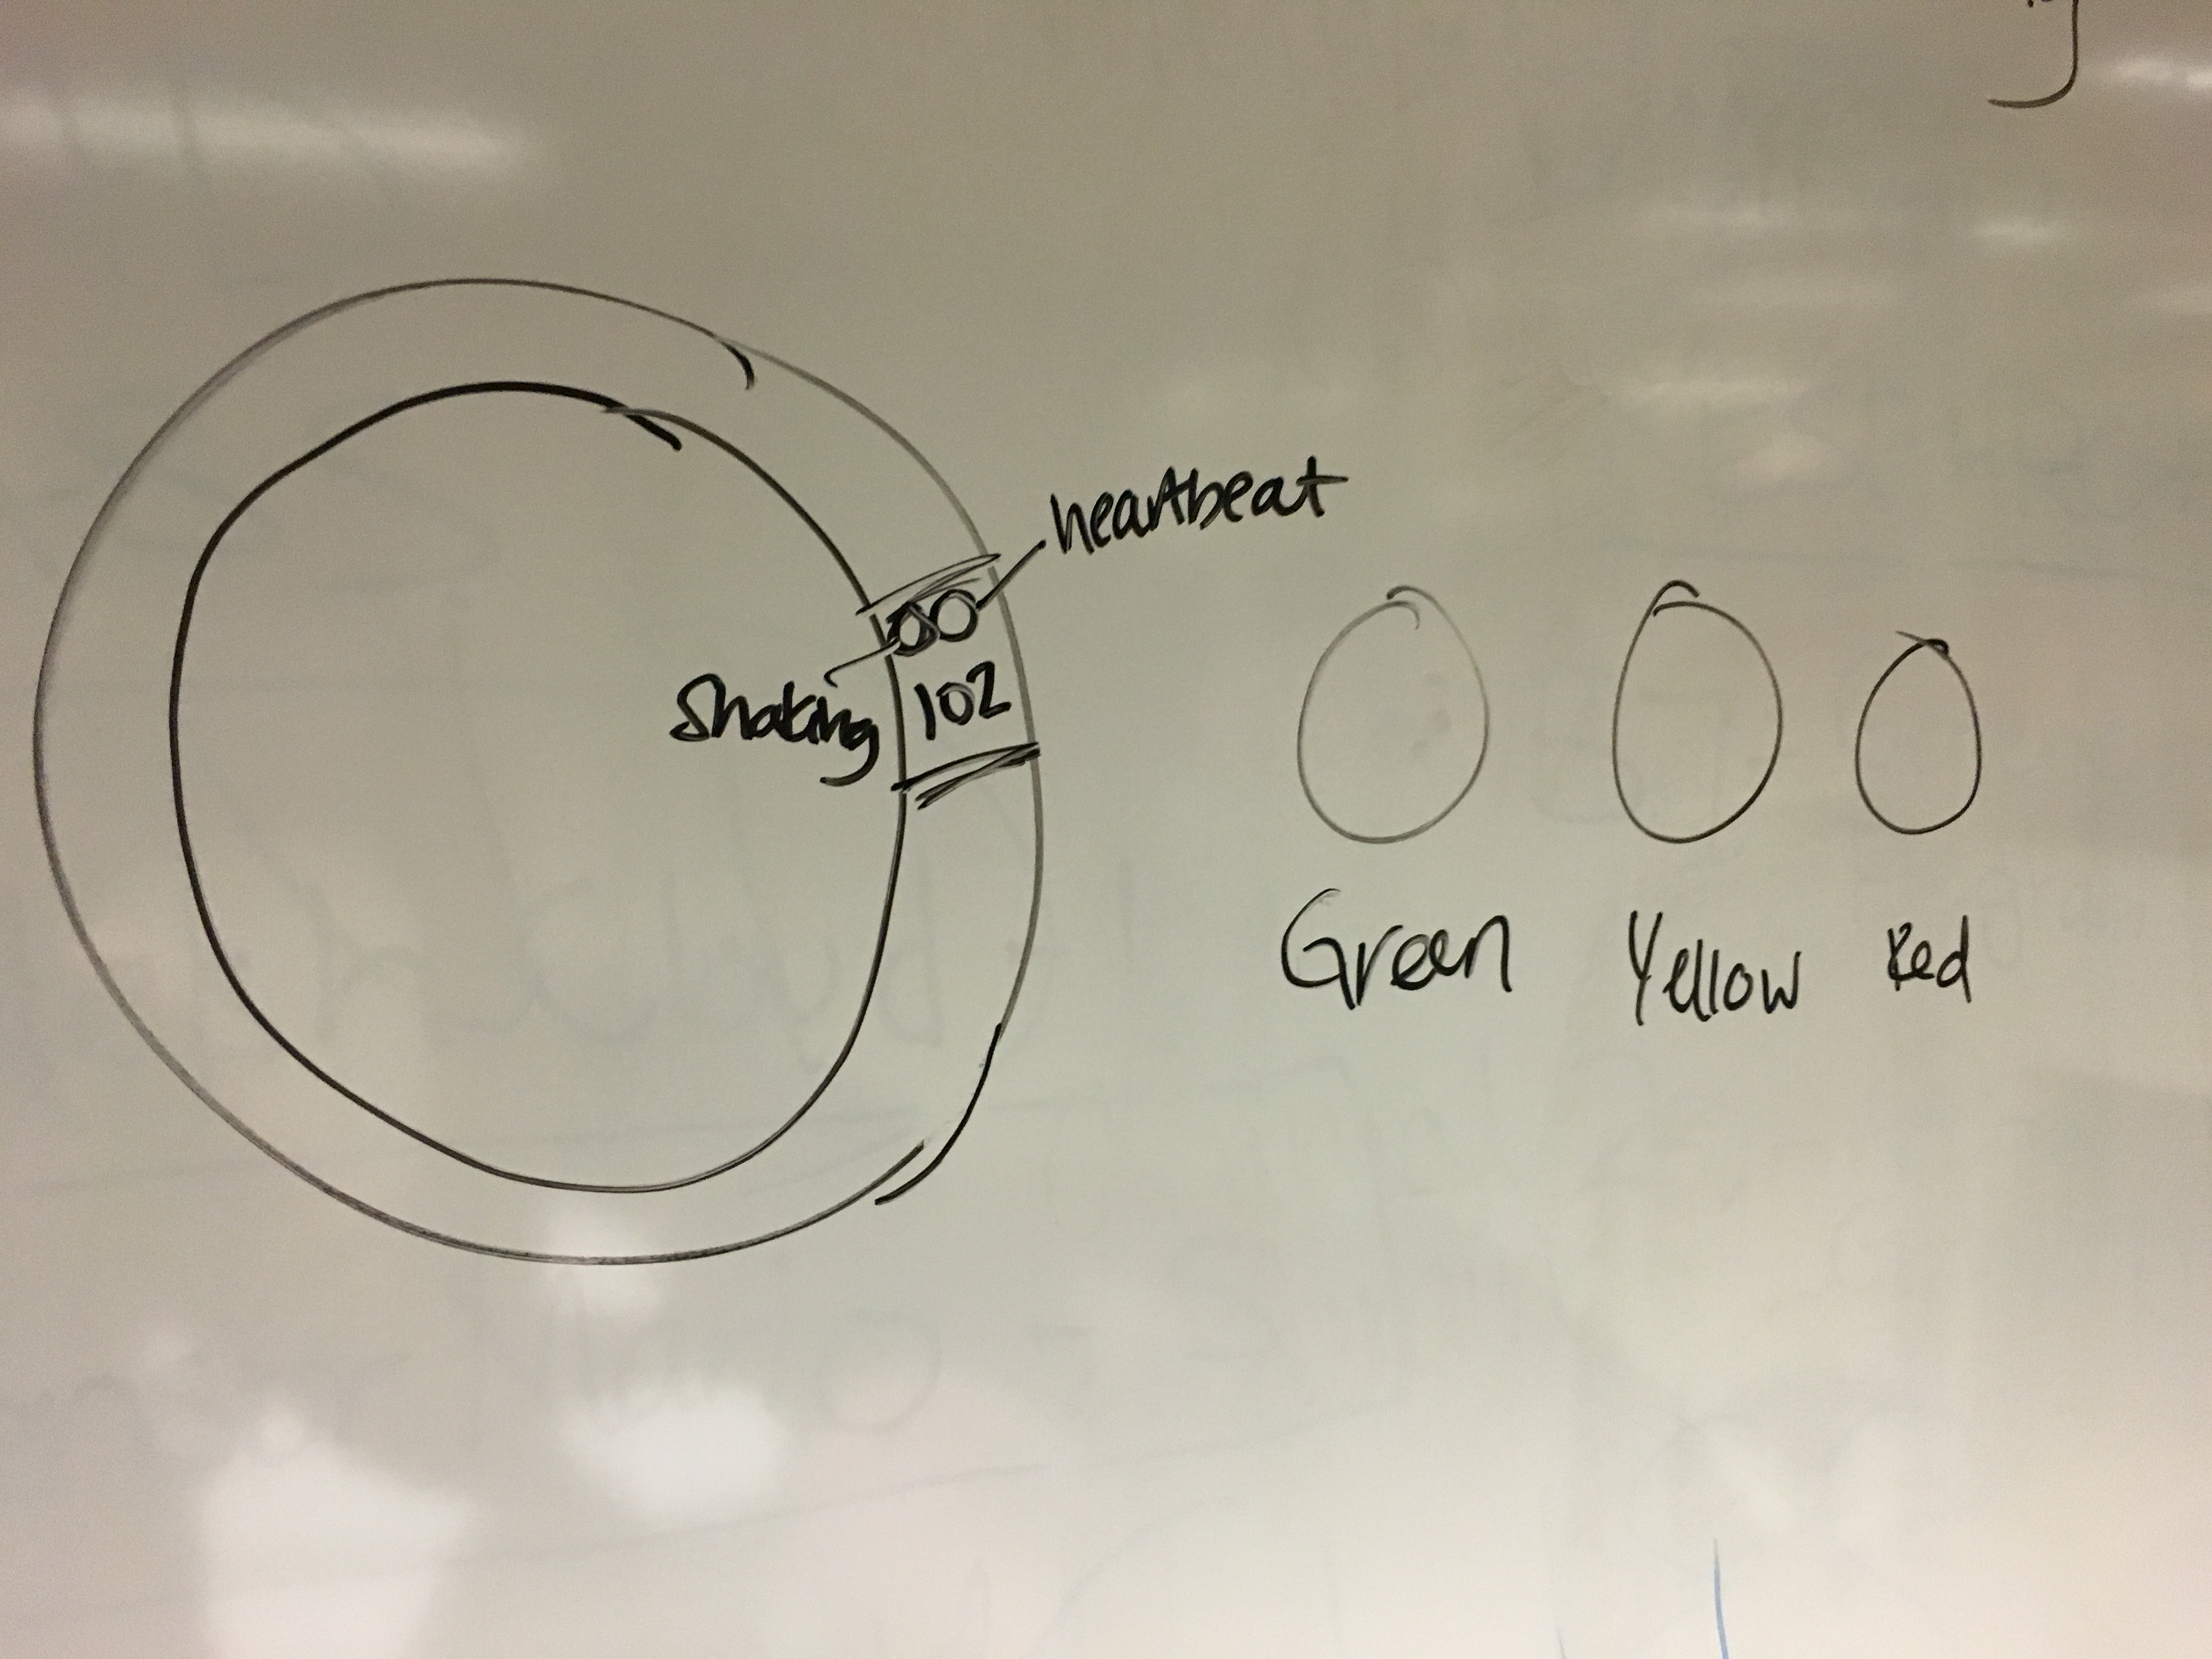 heartbeat
Shaking
102
Green Yellow Red